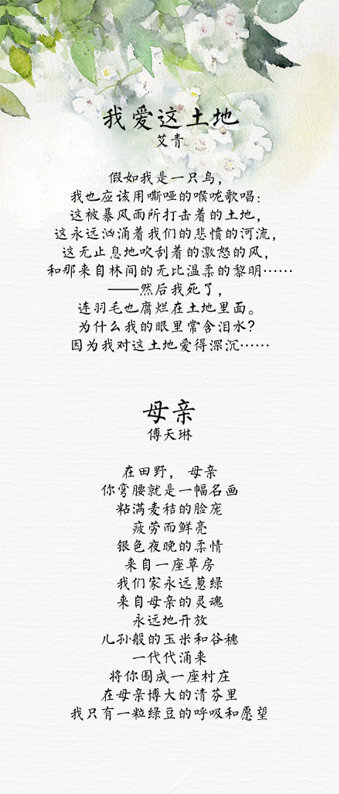 我爱这土地
艾青
假如我是一只鸟，
我也应该用嘶哑的喉咙歌唱：
这被暴风雨所打击着的土地，
这永远汹涌着我们的悲愤的河流，
这无止息地吹刮着的激怒的风，
和那来自林间的无比温柔的黎明……
——然后我死了，
连羽毛也腐烂在土地里面。
为什么我的眼里常含泪水？
因为我对这土地爱得深沉……
母亲
傅天琳
在田野， 母亲
你弯腰就是一幅名画
粘满麦秸的脸庞
疲劳而鲜亮
银色夜晚的柔情
来自一座草房
我们家永远葱绿
来自母亲的灵魂
永远地开放
儿孙般的玉米和谷穗
一代代涌来
将你围成一座村庄
在母亲博大的清芬里
我只有一粒绿豆的呼吸和愿望